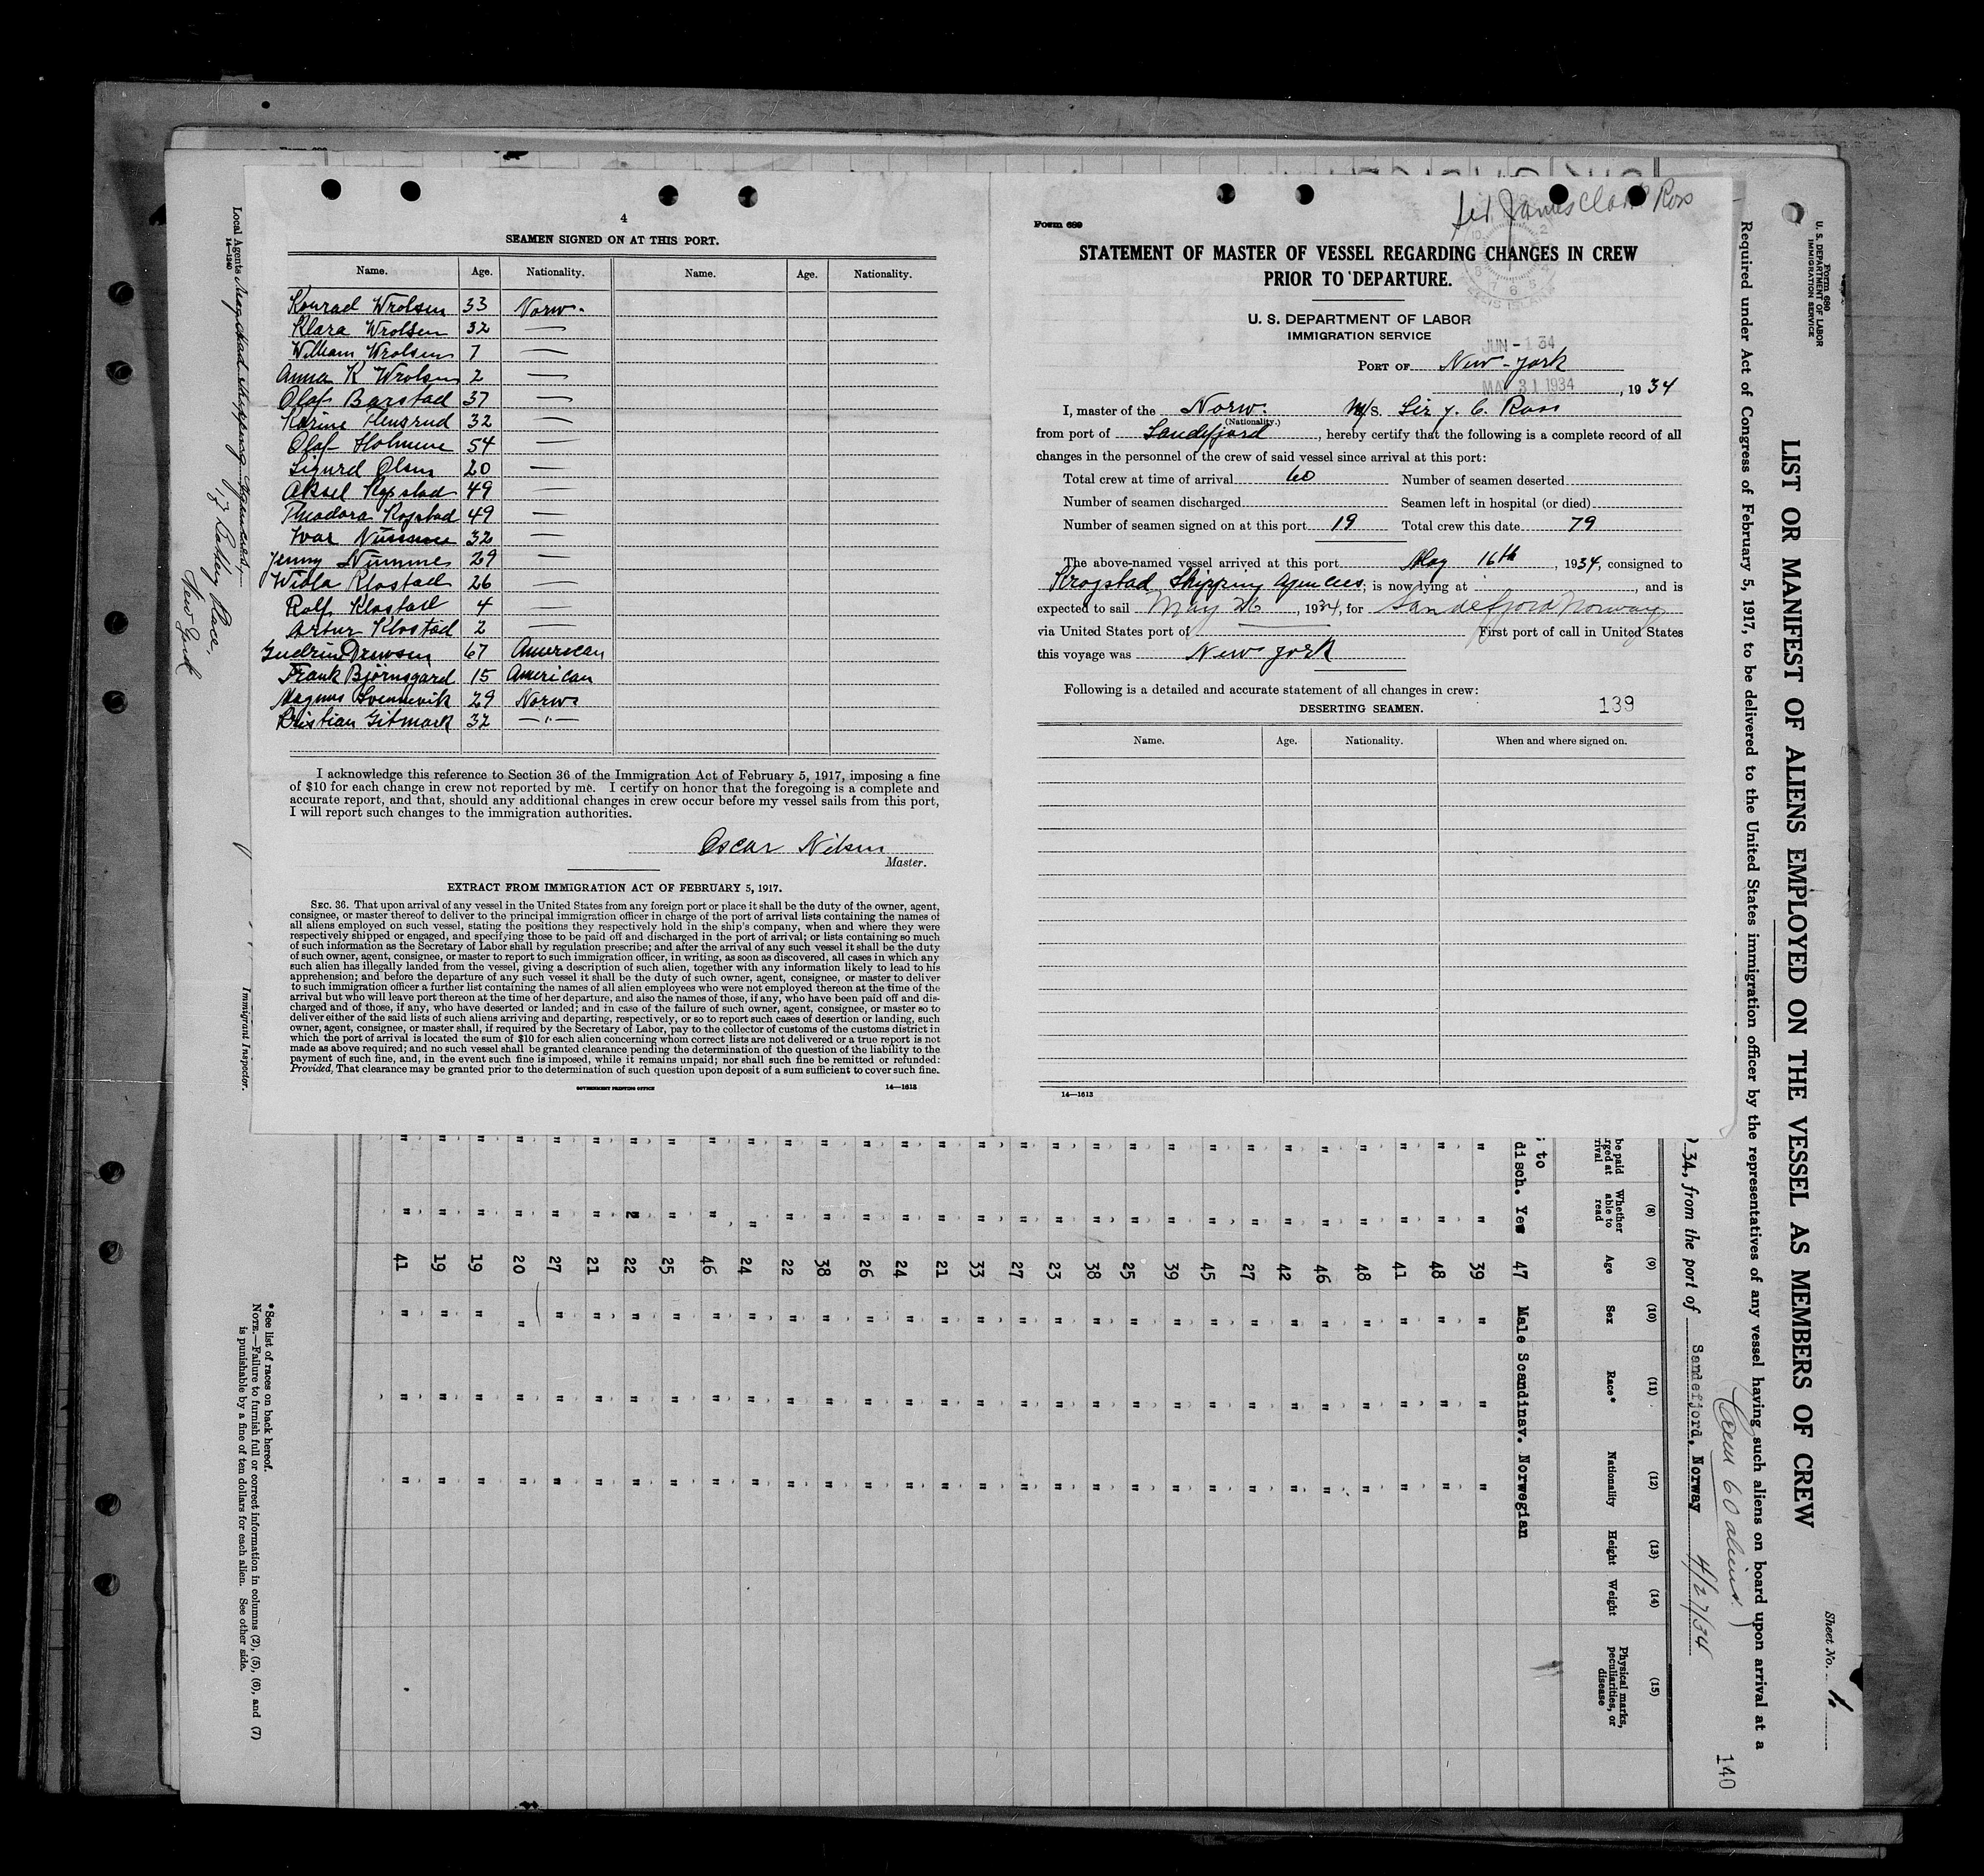 4
SEAMEN SIGNED ON AT THIS PORT.
Name. Age. Nationality. Name. Age. Nationality.
Konrad Wrolsen 33 Norw.
Klara Wrolsen 32 —
William Wrolsen 7 —
Anna K Wrolsen 2 —
Olaf Barstad 37 —
Karine 32 —
Olaf Holmene 54 —
Sigurd Olsen 20 —
Aksel Ropstad 49 —
Theodora Ropstad 49 —
Ivar 32 —
Jenny 29 —
Wiola Klostad 26 —
Rolf Klostad 4 —
Artur Klostad 2 —
Gudrine Drewsen 67 American
Frank Björnsgard 15 American
Magnus Svennevik 29 Norw.
Kristian Gitmark 32 —"—
I acknowledge this reference to Section 36 of the Immigration Act of February 5, 1917, imposing a fine
of $10 for each change in crew not reported by me. I certify on honor that the foregoing is a complete and
accurate report, and that, should any additional changes in crew occur before my vessel sails from this port,
I will report such changes to the immigration authorities.
Oscar Nilsen
Master.
EXTRACT FROM IMMIGRATION ACT OF FEBRUARY 5, 1917.
SEC. 36. That upon arrival of any vessel in the United States from any foreign port or place it shall be the duty of the owner, agent,
consignee, or master thereof to deliver to the principal immigration officer in charge of the port of arrival lists containing the names of
all aliens employed on such vessel, stating the positions they respectively hold in the ship's company, when and where they were
respectively shipped or engaged, and specifying those to be paid off and discharged in the port of arrival; or lists containing so much
of such information as the Secretary of Labor shall by regulation prescribe; and after the arrival of any such vessel it shall be the duty
of such owner, agent, consignee, or master to report to such immigration officer, in writing, as soon as discovered, all cases in which any
such alien has illegally landed from the vessel, giving a description of such alien, together with any information likely to lead to his
apprehension; and before the departure of any such vessel it shall be the duty of such owner, agent, consignee, or master to deliver
to such immigration officer a further list containing the names of all alien employees who were not employed thereon at the time of the
arrival but who will leave port thereon at the time of her departure, and also the names of those, if any, who have been paid off and dis-
charged and of those, if any, who have deserted or landed; and in case of the failure of such owner, agent, consignee, or master so to
deliver either of the said lists of such aliens arriving and departing, respectively, or so to report such cases of desertion or landing, such
owner, agent, consignee, or master shall, if required by the Secretary of Labor, pay to the collector of customs of the customs district in
which the port of arrival is located the sum of $10 for each alien concerning whom correct lists are not delivered or a true report is not
made as above required; and no such vessel shall be granted clearance pending the determination of the question of the liability to the
payment of such fine, and, in the event such fine is imposed, while it remains unpaid; nor shall such fine be remitted or refunded:
Provided, That clearance may be granted prior to the determination of such question upon deposit of a sum sufficient to cover such fine.
GOVERNMENT PRINTING OFFICE 14—1613
Sir James Clark Ross
Form 689
STATEMENT OF MASTER OF VESSEL REGARDING CHANGES IN CREW
PRIOR TO DEPARTURE.
ELLIS ISLAND
U. S. DEPARTMENT OF LABOR
IMMIGRATION SERVICE
JUN - 1 34
PORT OF New-York
MAY 31 1934, 1934
I, master of the Norw. M/S. Sir J. C. Ross
(Nationality.)
from port of Sandefjord, hereby certify that the following is a complete record of all
changes in the personnel of the crew of said vessel since arrival at this port:
Total crew at time of arrival 60 Number of seamen deserted
Number of seamen discharged Seamen left in hospital (or died)
Number of seamen signed on at this port 19 Total crew this date 79
The above-named vessel arrived at this port May 16th, 1934, consigned to
Krogstad Shipping Agencies, is now lying at , and is
expected to sail May 26, 1934, for Sandefjord Norway
via United States port of First port of call in United States
this voyage was New York
Following is a detailed and accurate statement of all changes in crew:
DESERTING SEAMEN. 139
Name. Age. Nationality. When and where signed on.
14—1613
Form 680
U. S. DEPARTMENT OF LABOR
IMMIGRATION SERVICE
Sheet No. 1.
LIST OR MANIFEST OF ALIENS EMPLOYED ON THE VESSEL AS MEMBERS OF CREW
Required under Act of Congress of February 5, 1917, to be delivered to the United States immigration officer by the representatives of any vessel having such aliens on board upon arrival at a
60 aliens
140
34, from the port of Sandefjord, Norway 4/27/34
(8) (9) (10) (11) (12) (13) (14) (15)
be paid
rged at
rival
Whether able to read
Age
Sex
Race*
Nationality
Height
Weight
Physical marks, peculiarities, or disease
to
disch. Yes 47 Male Scandinav. Norwegian
" " 39 " " "
" " 48 " " "
" " 41 " " "
" " 48 " " "
" " 46 " " "
" " 42 " " "
" " 27 " " "
" " 45 " " "
" " 39 " " "
" " 25 " " "
" " 38 " " "
" " 23 " " "
" " 27 " " "
" " 33 " " "
" " 21 " " "
" " 24 " " "
" " 26 " " "
" " 38 " " "
" " 22 " " "
" " 24 " " "
" " 46 " " "
" " 25 " " "
" " 22 " " "
" " 21 " " "
" " 27 " " "
" " 20 " " "
" " 19 " " "
" " 19 " " "
" " 41 " " "
* See list of races on back hereof.
NOTE.—Failure to furnish full or correct information in columns (2), (5), (6), and (7)
is punishable by a fine of ten dollars for each alien. See other side.
Immigrant Inspector.
Local Agents Shipping Agencies
14—1240
17 Battery Place,
New York